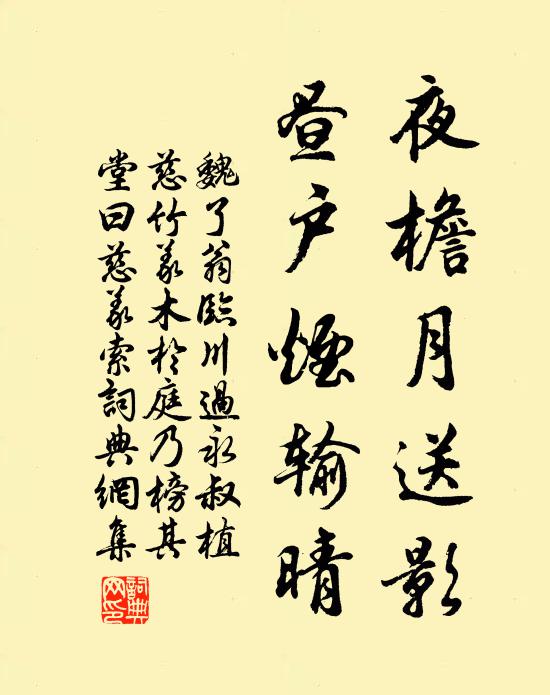 夜檐月送影
昼户煙输晴
魏了翁臨川過永叔植
慈竹義木於庭乃榜其
堂曰慈義索詞典網集
詞典网印